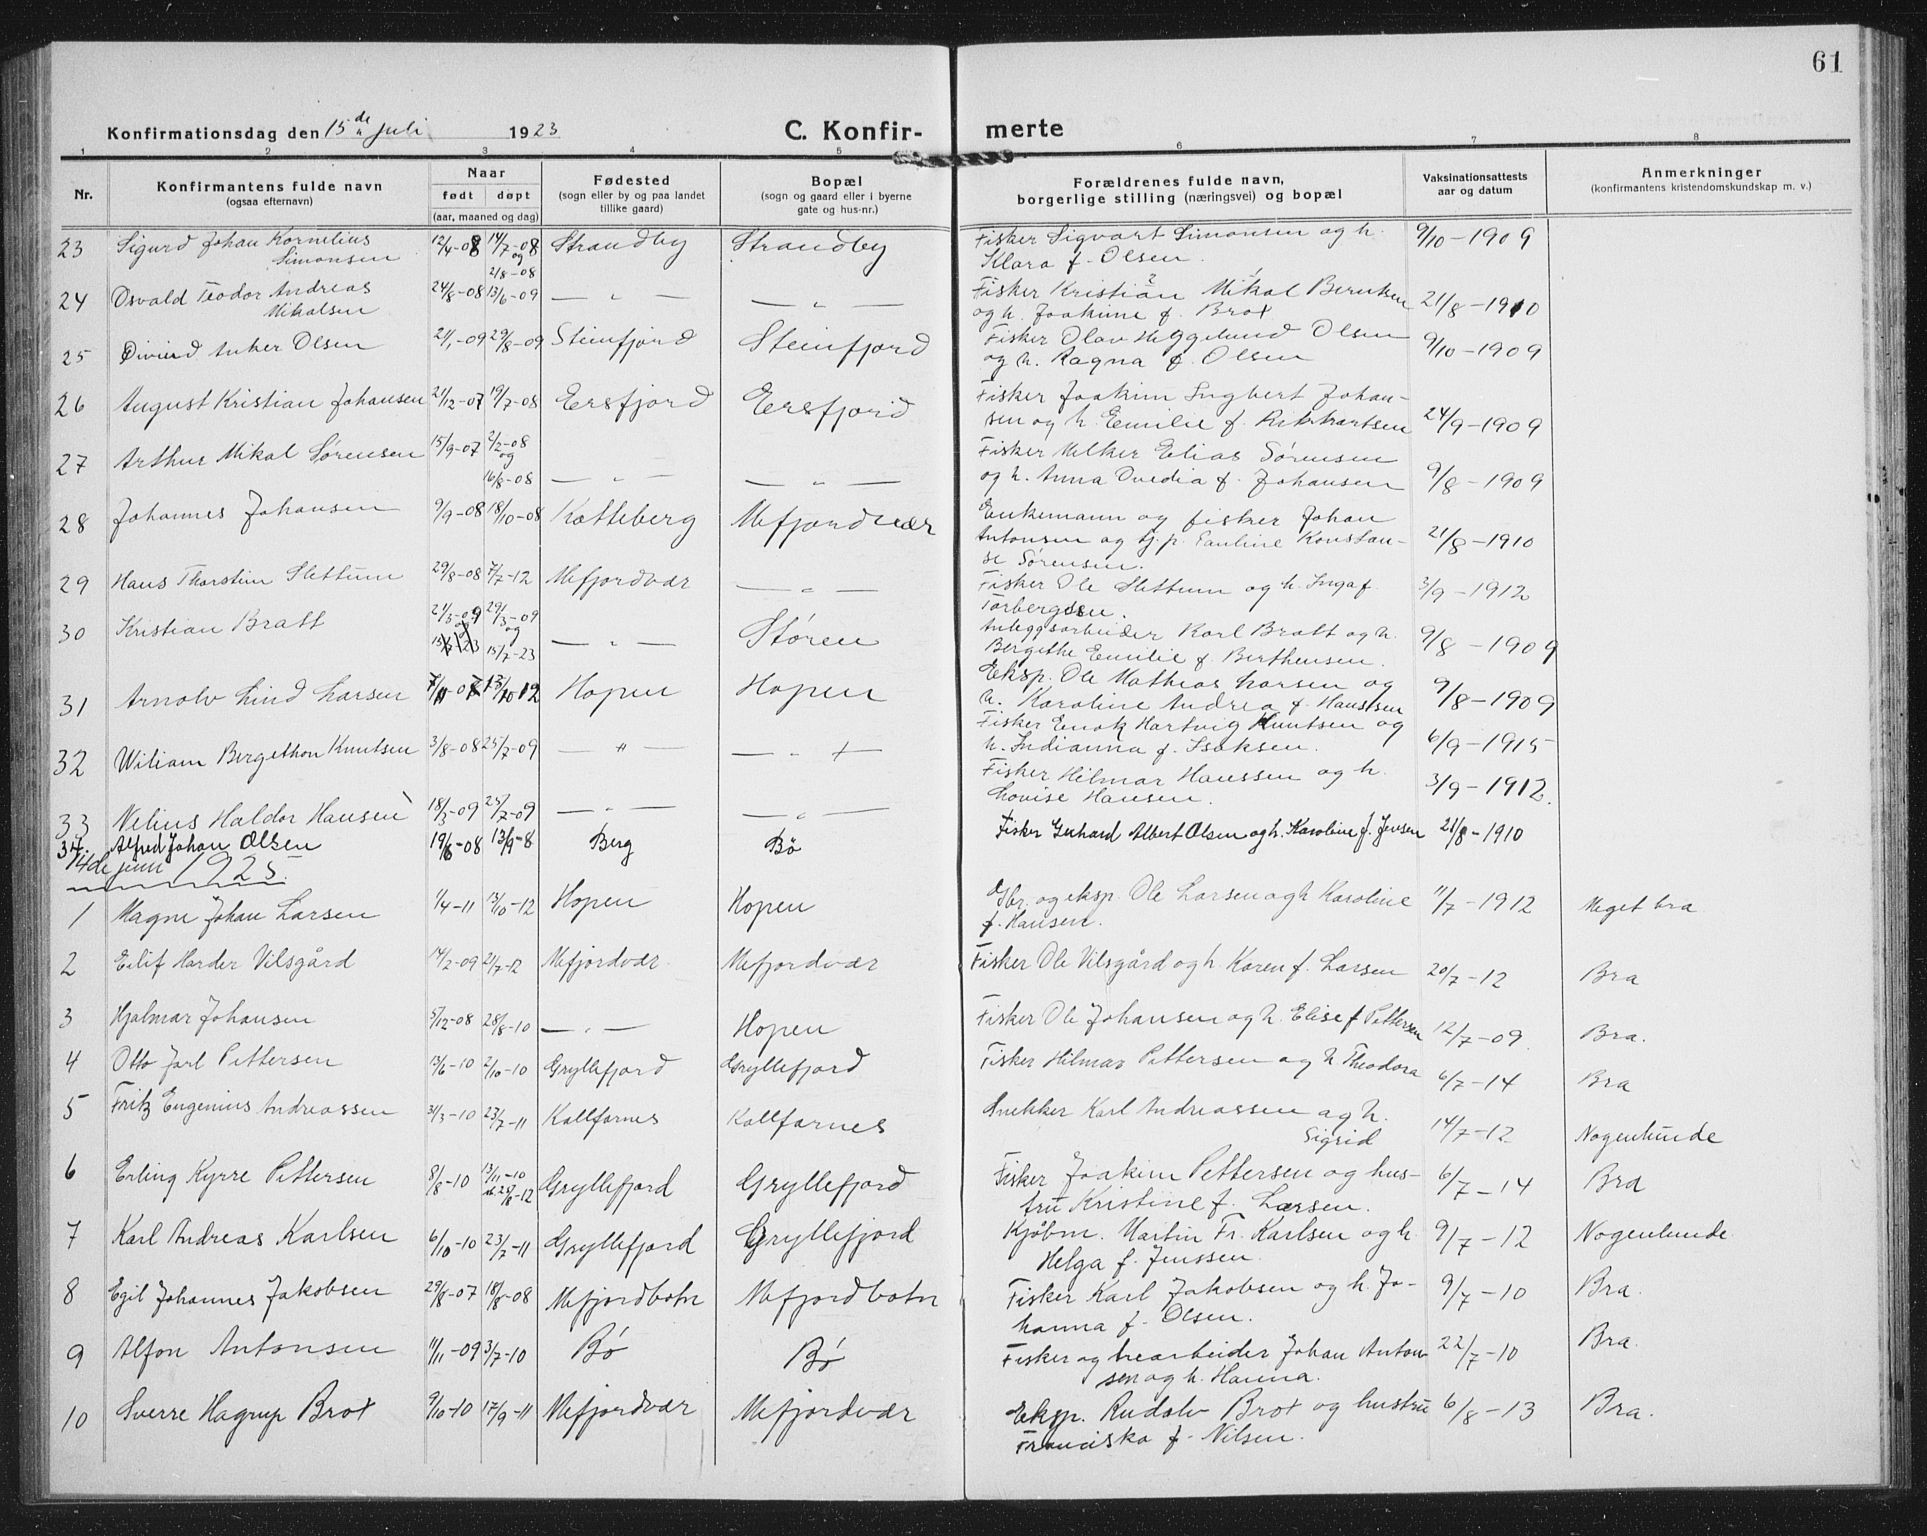 61
Konfirmationsdag den 15de juli 1923 C. Konfir- merte
1 2 3 4 5 6 7 8
Nr. Konfirmantens fulde navn (ogsaa efternavn) Naar født døpt (aar, maaned og dag) Fødested (sogn eller by og paa landet tillike gaard) Bopæl (sogn og gaard eller i byerne gate og hus-nr.) Forældrenes fulde navn, borgerlige stilling (næringsvei) og bopæl Vaksinationsattests aar og datum Anmerkninger (konfirmantens kristendomskundskap m. v.)
23 Sigurd Johan Kornelius 12/4-08 14/7-08 Strandby Strandby Fisker Sigvart Simonsen og h. 9/10-1909
Simonsen og 2/8-08 Klara f. Olsen.
24 Osvald Teodor Andreas 24/8-08 13/6-09 — " — — " — Fisker Kristian Mikal Berntsen 21/8-1910
Mikalsen og h. Joakime f. Brox
25 Eivind Anker Olsen 21/1-09 29/8-09 Steinfjord Steinfjord Fisker Olav Heggelund Olsen 9/10-1909
og h. Ragna f. Olsen
26 August Kristian Johansen 21/12-07 19/7-08 Ersfjord Ersfjord Fisker Joakim Ingbert Johan-
sen og h. Emilie f. 24/9-1909
27 Arthur Mikal Sørensen 15/9-07 2/2-08 og 16/8-08 — " — — " — Fisker Melker Elias Sørensen
og h. Anna Ovedia f. Johansen 9/8-1909
28 Johannes Johansen 9/9-08 18/10-08 Katteberg Mefjordvær Enkemann og fisker Johan
Antonsen og Pauline Konstan- 21/8-1910
se Sørensen.
29 Hans Thorstein Slettum 29/8-08 7/7-12 Mefjordvær — " — Fisker Ole Slettum og h. Inga f. 3/9-1912
Torbergsen.
30 Kristian Bratt 21/3-09 29/3-09 og 15/7-23 — " — Støren Anleggsarbeider Karl Bratt og h. 9/8-1909
Bergithe Emilie f. Berthensen.
31 Arnolv Lind Larsen 13/10 12 Hopen Hopen Eksp. Ole Mathias Larsen og 9/8-1909
h. Karoline Andrea f. Hanssen
32 Wiliam Bergethon Knutsen 3/8-08 25/7-09 — " — — " — Fisker Enok Hartvig Knutsen og 6/9-1915
h. Indianna f. Isaksen.
33 Nelius Haldor Hansen 18/3-09 25/7-09 — " — — " — Fisker Hilmar Hanssen og h. 3/9-1912.
Lovise Hansen.
34. Alfred Johan Olsen 19/6-08 13/9-8 Berg Bø Fisker Gerhard Albert Olsen og h. Karoline f. Jensen 21/8-1910
14de juni 1925.
1 Magne Johan Larsen 1/4-11 13/10-12 Hopen Hopen Gbr. og eksp. Ole Larsen og h. Karoline 11/7-1912 Meget bra
f. Hansen.
2 Eilif Harder Vilsgård 14/2-09 21/7-12 Mefjordvær Mefjordvær Fisker Ole Vilsgård og h. Karen f. Larsen 20/7-12 Bra
3 Hjalmar Johansen 5/12-08 28/8-10 — " — Hopen Fisker Ole Johansen og h. Elise f Pettersen 12/7-09 Bra.
4 Otto Jarl Pettersen 13/6-10 2/10-10 Gryllefjord Gryllefjord Fisker Hilmar Pettersen og h Theodora 6/7-14 Bra
5 Fritz Engenius Andreassen 31/3-10 23/7-11 Kallfarnes Kallfarnes Snekker Karl Andreassen og h. 14/7-12 Nogenlunde
Sigrid
6 Erling Kyrre Pettersen 8/8-10 13/11-10 Gryllefjord Gryllefjord Fisker Joakim Pettersen og hus- 6/7-14 Bra
tru Kristine f. Larsen.
7 Karl Andreas Karlsen 6/10-10 23/7-11 Gryllefjord Gryllefjord Kjøbm. Martin Fr. Karlsen og h. 9/7-12 Nogenlunde.
Helga f. Jenssen.
8 Egil Johannes Jakobsen 29/8-07 18/8-08 Mefjordbotn Mefjordbotn Fisker Karl Jakobsen og h. Jo- 9/7-10 Bra.
hanna f. Olsen.
9 Alfon Antonsen 11/11-09 3/7-10 Bø Bø Fisker og trearbeider Johan Anton- 22/7-10 Bra.
sen og h. Hanna.
10 Sverre Hagrup Brox 9/10-10 17/9-11 Mefjordvær Mefjordvær Eksp. Rudolv Brox og hustru 6/8-13 Bra.
Franciska f. Nilsen.